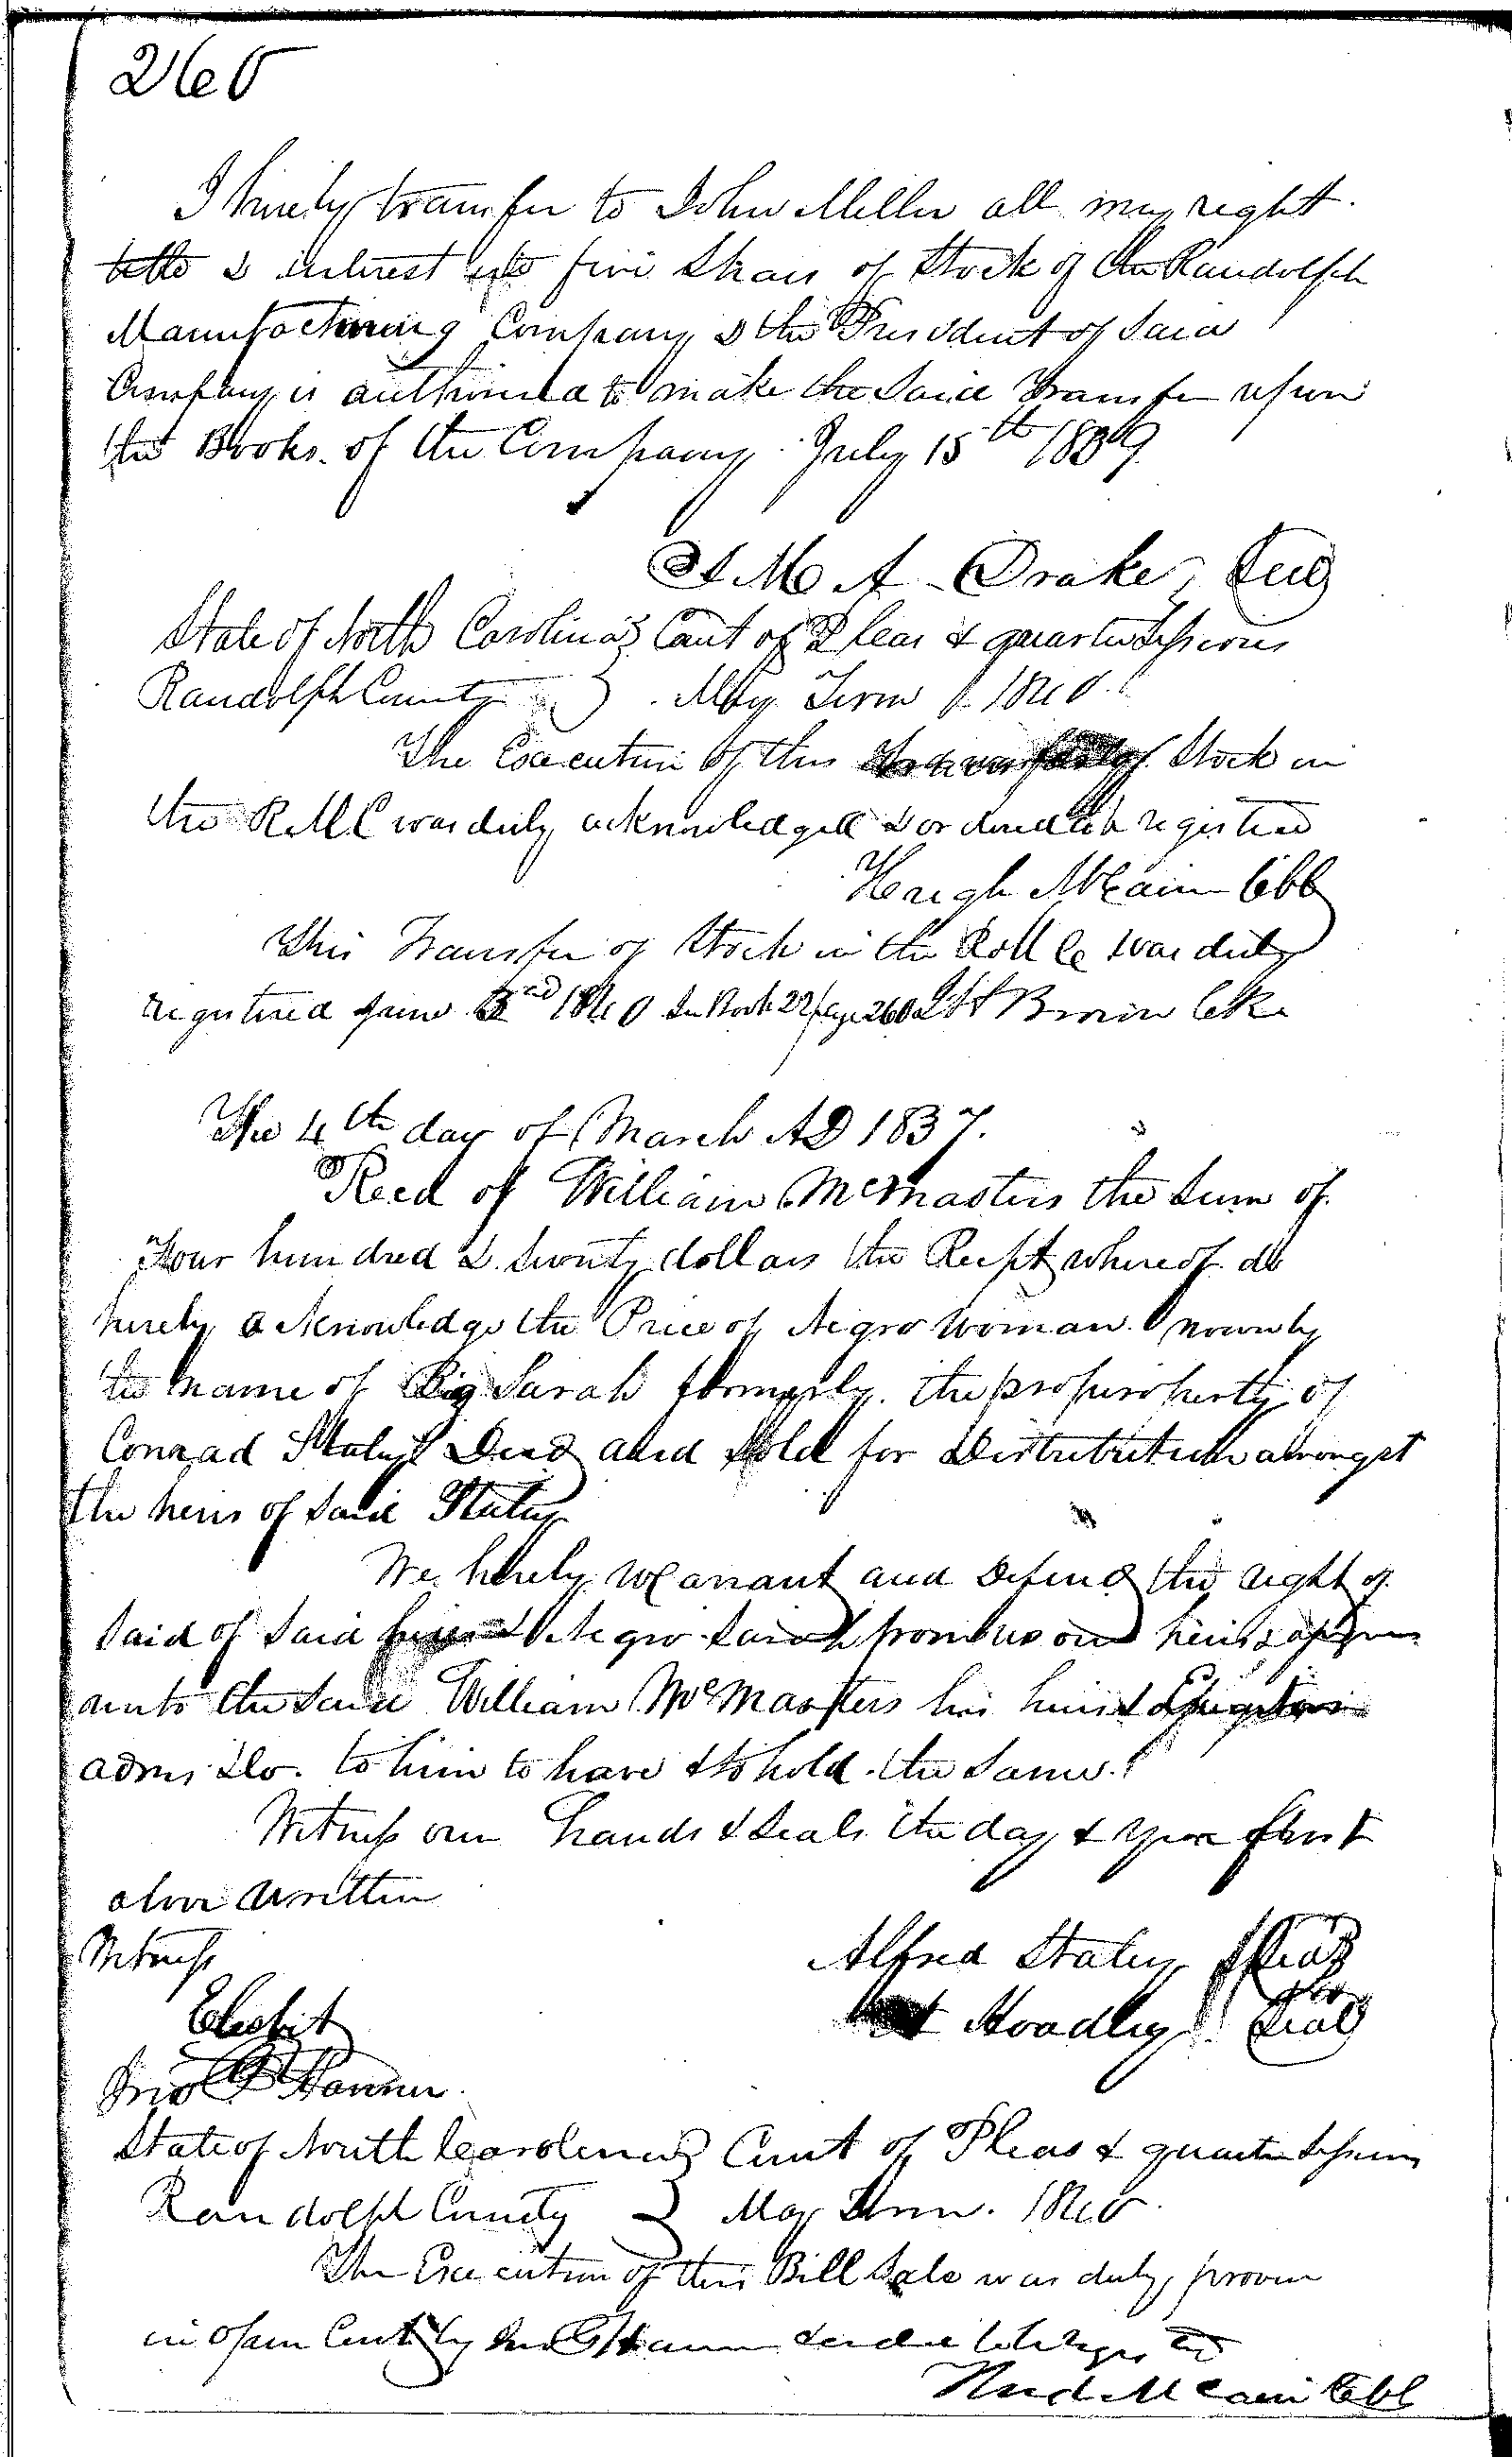 260
I hereby transfer to John Miller all my right
title & interest into five Shars of Stock of the Randolph
Manufacturing Company & the President of Said
Company is authorised to make the Said Transfer upon
the Books of the Company July 15th 1839
M A Drake
State of North Carolina } Court of Pleas & quarter Sessions
Randolph County } May Term 1840
The Execution of this Transfer of Stock in
the R M C was duly acknowledged & ordered to be registered
Hugh McCain CCC
This Transfer of Stock in the R M C was duly
registered June 1840 In Book 22 page 260 Brown
The 4th day of March AD 1837.
Recd of William McMasters the Sum of
Four hundred & twenty dollars the Recpt whereof do
hereby acknowledge the Price of Negro Woman known by
the name of Big Sarah formerly the properoperty of
Conrad Staley Decd and Sold for Distribution amongst
the heirs of Said Staley
We hereby Warrant and Defend the right of
Said of Said Negro Sarah from us our heirs & assigns
unto the Said William McMasters his heirs
adms &c. to him to have & to hold the Same.
Witness our hands & Seals the day & year first
above written
Witness
Alfred Staley Seal
Hoadley Seal
Jno Hanner
State of North Carolina } Court of Pleas & quarter Sessions
Randolph County } May Term. 1840.
The Execution of this Bill Sale was duly proven
in open Court by Jno Hanner
McCain CCC